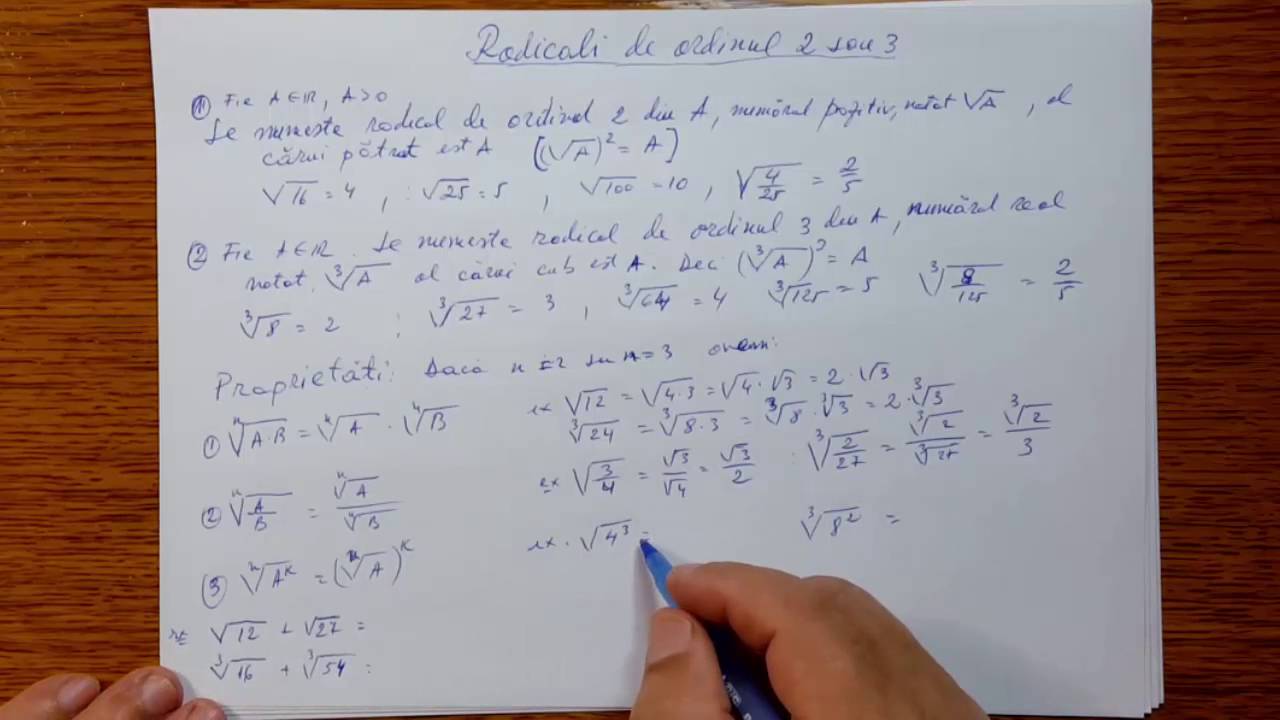 Radicali de ordinul 2 sau 3
① Fie A∈ℝ, A>0
Se numeste radical de ordinul 2 din A, numărul pozitiv, notat √A, al
cărui pătrat est A [(√A)² = A]
√16 = 4 , √25 = 5 , √100 = 10 , √(4/25) = 2/5
② Fie A∈ℝ. Se numeste radical de ordinul 3 din A, numărul real
notat ∛A al cărui cub est A. Deci (∛A)³ = A
∛8 = 2 ; ∛27 = 3 , ∛64 = 4 ∛125 = 5 ∛(8/125) = 2/5
Proprietăti: Dacă n=2 sau n=3 avem:
① ⁿ√(A·B) = ⁿ√A · ⁿ√B
ex √12 = √(4·3) = √4 · √3 = 2 · √3
∛24 = ∛(8·3) = ∛8 · ∛3 = 2 · ∛3
② ⁿ√(A/B) = ⁿ√A / ⁿ√B
ex √(3/4) = √3/√4 = √3/2 . ∛(2/27) = ∛2/∛27 = ∛2/3
③ ⁿ√(Aᵏ) = (ⁿ√A)ᵏ
ex. √(4³) = ∛(8²) =
√12 + √27 =
∛16 + ∛54 =